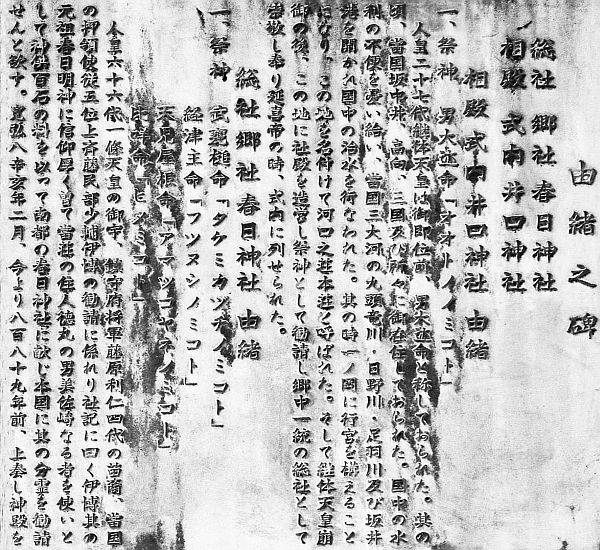 由緒之碑
総社 郷社 春日神社
相殿 式内 井口神社
相殿 式内 井口神社 由緒
一、祭神 男大迹命「オオトノミコト」
人皇二十七代継体天皇は御即位前、男大迹命と称しておられた。其の
頃、当国坂中井、高向、三国及び所々に御在住しておられた。国中の水
利の不便を憂い給い、当国三大河の九頭竜川・日野川・足羽川及び坂井
港を開かれ国中の治水を行なわれた。其の時一ノ岡に行宮を構えること
になり、この地を名付けて河口之荘本荘と呼ばれた。そして継体天皇崩
御の後、この地に社殿を造営し祭神として勧請し郷中一統の総社として
崇敬し奉り延喜帝の時、式内に列せられた。
総社 郷社 春日神社 由緒
一、祭神 武甕槌命「タケミカツチノミコト」
経津主命「フツヌシノミコト」
天児屋根命「アマツコヤネノミコト」
比咩命「ヒメミコト」
人皇六十六代一條天皇の御宇、鎮守府将軍藤原利仁四代の苗裔、当国
の押領使従五位上斉藤民部少輔伊博の勧請に係れり社記に曰く伊博其の
元祖春日明神に信仰厚く曽て当荘の住人徳丸の男美佐崎なる者を使いと
して神供百石の料を以って南都の春日神社に献じ本国に其の分霊を勧請
せんと欲す。寛弘八辛亥年二月、今より八百八十九年前、上奏し神殿を